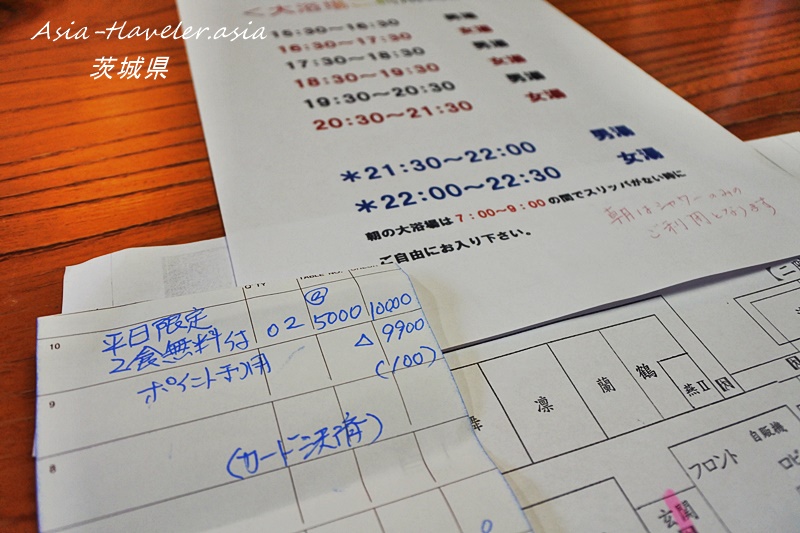 Asia-Haveler.asia
茨城県
<大浴場
15:30～16:30 男湯
16:30～17:30 女湯
17:30～18:30 男湯
18:30～19:30 女湯
19:30～20:30 男湯
20:30～21:30 女湯
*21:30～22:00 男湯
*22:00～22:30 女湯
朝の大浴場は7:00～9:00の間でスリッパがない時に
ご自由にお入り下さい。
朝はシャワーのみの
ご利用となります
Q'TY TABLE NO.
10 平日限定
2食無料付 02 @5000 10000
ポイント利用 △9900
(100)
9
(カード決済)
8
0
凛 蘭 鶴 燕II
フロント 自販機
ロビ
玄関